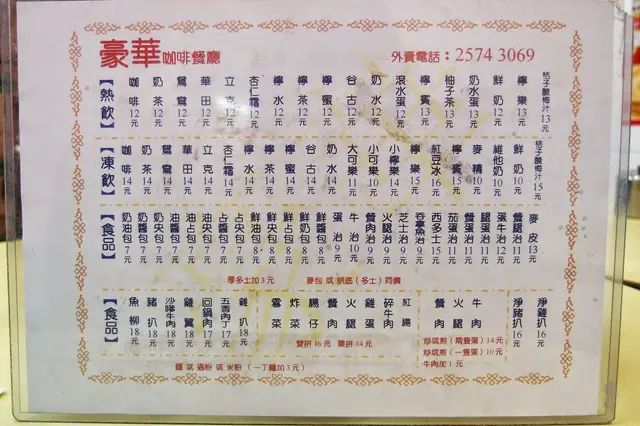 豪華咖啡餐廳
外賣電話：2574 3069
【熱飲】
咖啡 12元
奶茶 12元
鴛鴦 12元
華田 12元
立克 12元
杏仁霜 12元
檸水 12元
檸茶 12元
檸蜜 12元
谷古 12元
奶水 12元
滾水蛋 12元
檸賓 13元
柚子茶 13元
奶水蛋 13元
鮮奶 12元
檸樂 13元
桔子酸梅汁 13元
【凍飲】
咖啡 14元
奶茶 14元
鴛鴦 14元
華田 14元
立克 14元
杏仁霜 14元
檸水 14元
檸茶 14元
檸蜜 14元
谷古 14元
奶水 14元
大可樂 11元
小可樂 10元
小檸樂 14元
檸樂 15元
紅豆冰 16元
檸賓 15元
麥精 10元
維他奶 10元
鮮奶 10元
桔子酸梅汁 15元
【食品】
奶油包 7元
奶醬包 7元
奶央包 7元
油醬包 7元
油占包 7元
油央包 7元
占醬包 7元
占央包 7元
鮮油包 8元
鮮央包 8元
鮮占包 8元
鮮奶包 8元
鮮醬包 8元
蛋治 9元
牛治 10元
餐肉治 9元
火腿治 9元
芝士治 9元
吞拿魚治 9元
西多士 15元
茄蛋治 11元
餐蛋治 11元
腿蛋治 11元
蛋牛治 12元
餐腿治 11元
麥皮 13元
厚多士加3元
麥包 或 烘底（多士）同價
【食品】
魚柳 18元
豬扒 18元
沙嗲牛肉 18元
雞翼 18元
回鍋肉 17元
五香肉丁 17元
雞扒 18元
雪菜
炸菜
腸仔
餐肉
火腿
雞蛋
碎牛肉
紅腸
雙拼16元 單拼14元
餐肉
火腿
牛肉
炒或煎（兩隻蛋）14元
炒或煎（一隻蛋）10元
牛肉加1元
淨豬扒 16元
淨雞扒 16元
麵 或 通粉 或 米粉 （一丁麵加3元）